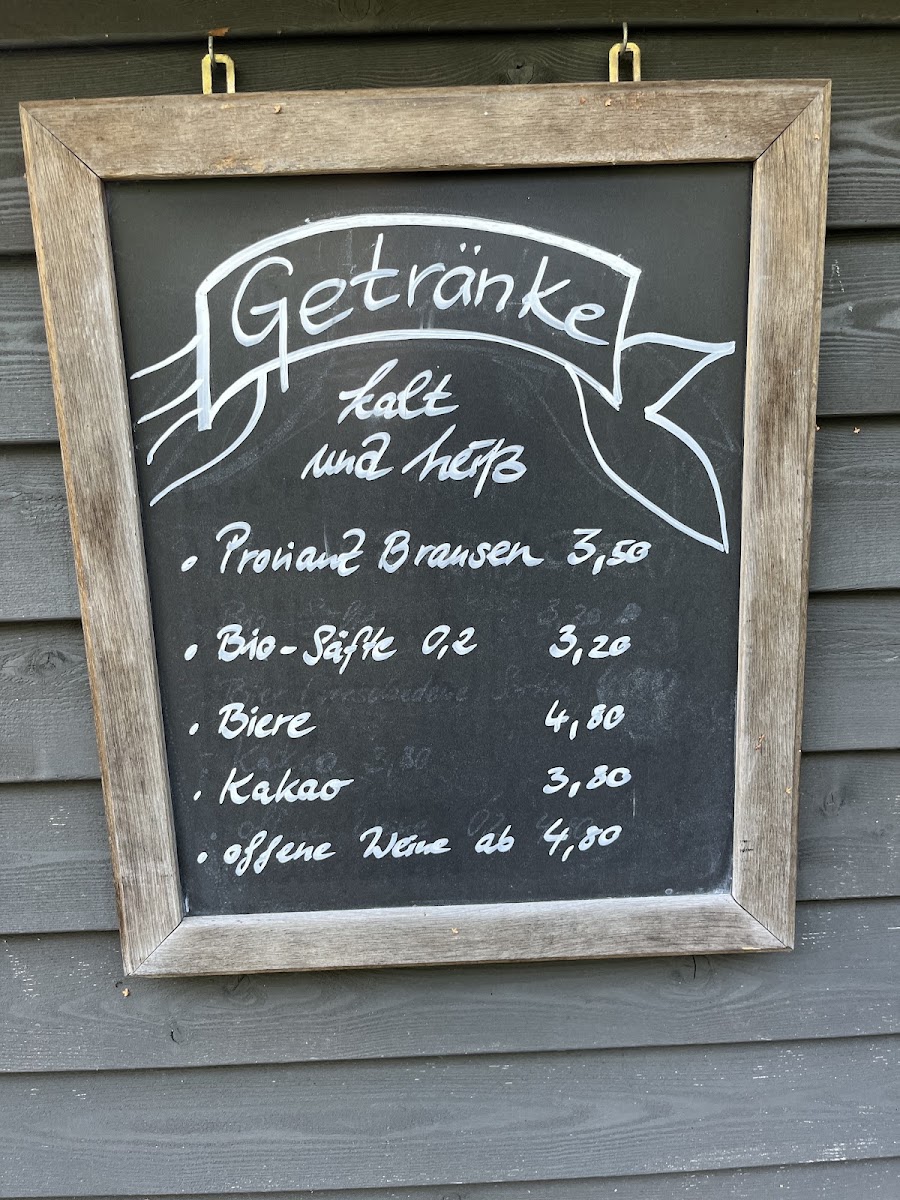 Getränke
kalt
und heiß
• Proviant Brausen 3,50
• Bio-Säfte 0,2 3,20
• Biere 4,80
• Kakao 3,80
• offene Weine ab 4,80